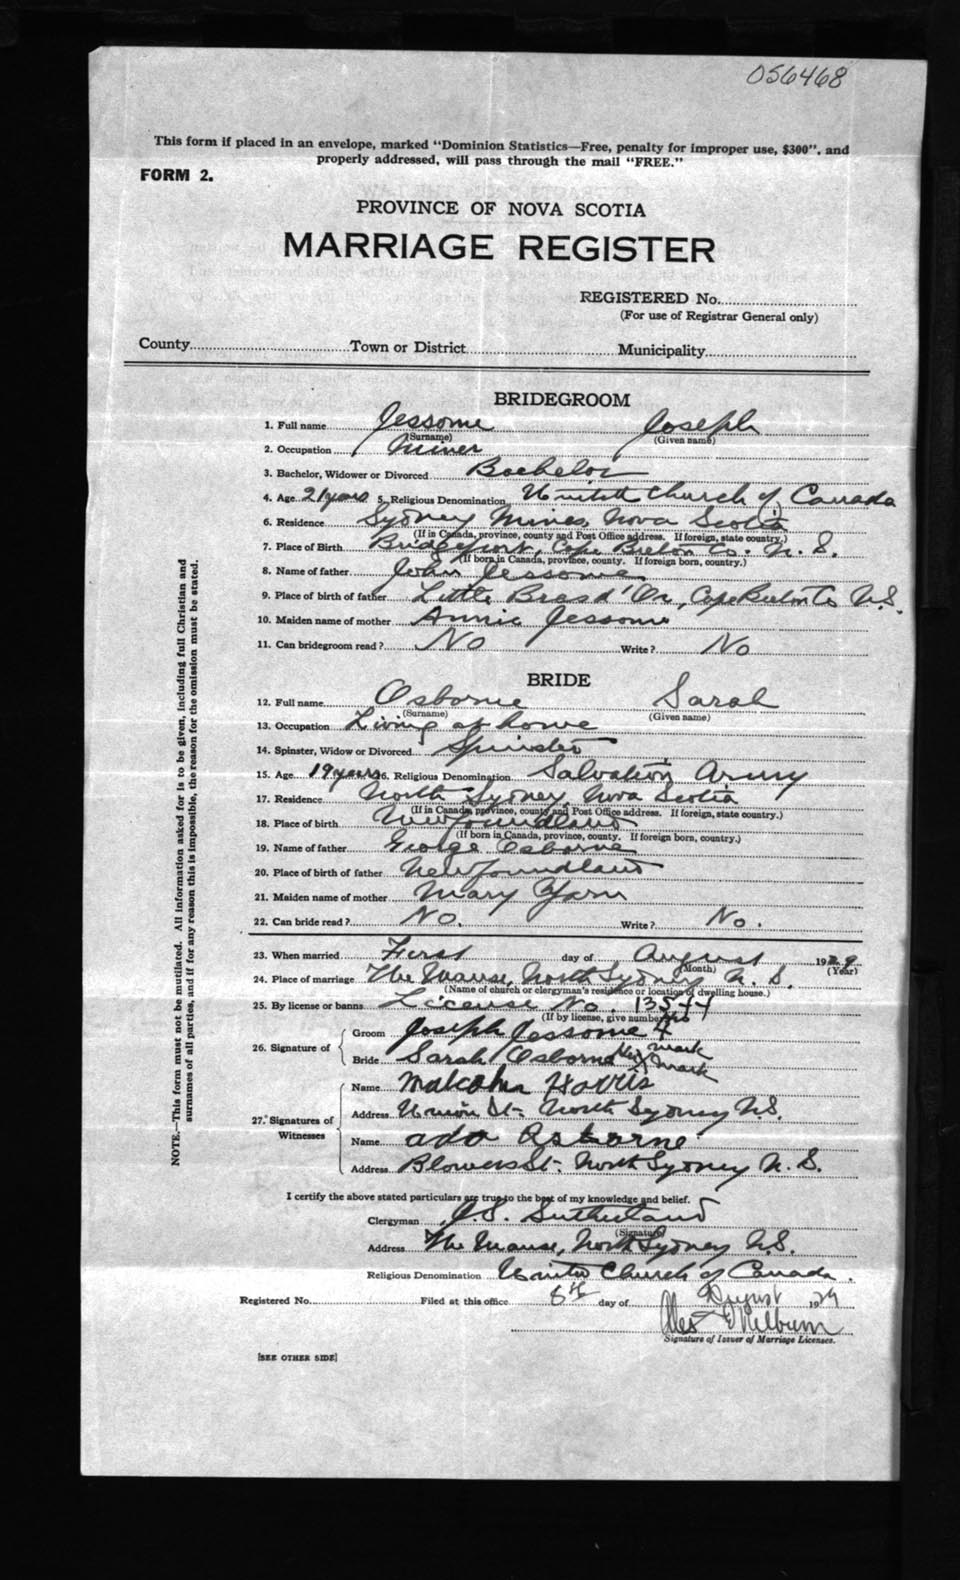 056468
This form if placed in an envelope, marked "Dominion Statistics—Free, penalty for improper use, $300", and
properly addressed, will pass through the mail "FREE."
FORM 2.
PROVINCE OF NOVA SCOTIA
MARRIAGE REGISTER
REGISTERED No.
(For use of Registrar General only)
County Town or District Municipality
BRIDEGROOM
1. Full name Jessome Joseph
(Surname) (Given name)
2. Occupation Miner
3. Bachelor, Widower or Divorced Bachelor
4. Age 21 years 5. Religious Denomination United Church of Canada
6. Residence Sydney Mines, Nova Scotia
(If in Canada, province, county and Post Office address. If foreign, state country.)
7. Place of Birth Bridgeport, Cape Breton Co. N. S.
(If born in Canada, province, county. If foreign born, country.)
8. Name of father John Jessome
9. Place of birth of father Little Bras d'Or, Cape Breton Co N.S.
10. Maiden name of mother Annie Jessome
11. Can bridegroom read? No Write? No
BRIDE
12. Full name Osborne Sarah
(Surname) (Given name)
13. Occupation Living at home
14. Spinster, Widow or Divorced Spinster
15. Age 19 years 16. Religious Denomination Salvation Army
17. Residence North Sydney, Nova Scotia
(If in Canada, province, county and Post Office address. If foreign, state country.)
18. Place of birth Newfoundland
(If born in Canada, province, county. If foreign born, country.)
19. Name of father George Osborne
20. Place of birth of father Newfoundland
21. Maiden name of mother Mary Yarn
22. Can bride read? No. Write? No.
23. When married First day of August 1929
(Month) (Year)
24. Place of marriage The Manse, North Sydney N. S.
(Name of church or clergyman's residence or location of dwelling house.)
25. By license or banns License No. 13544
(If by license, give number)
26. Signature of Groom Joseph Jessome X his mark
Bride Sarah Osborne Her X mark
27. Signatures of Witnesses
Name Malcolm Harris
Address Union St- North Sydney N.S.
Name ada Osborne
Address Blowers St- North Sydney N. S.
I certify the above stated particulars are true to the best of my knowledge and belief.
Clergyman J.S. Sutherland
(Signature)
Address The Manse, North Sydney N.S.
Religious Denomination United Church of Canada.
Registered No. Filed at this office 8th day of August 1929
Signature of Issuer of Marriage Licenses.
[SEE OTHER SIDE]
NOTE.—This form must not be mutilated. All information asked for is to be given, including full Christian and
surnames of all parties, and if for any reason this is impossible, the reason for the omission must be stated.